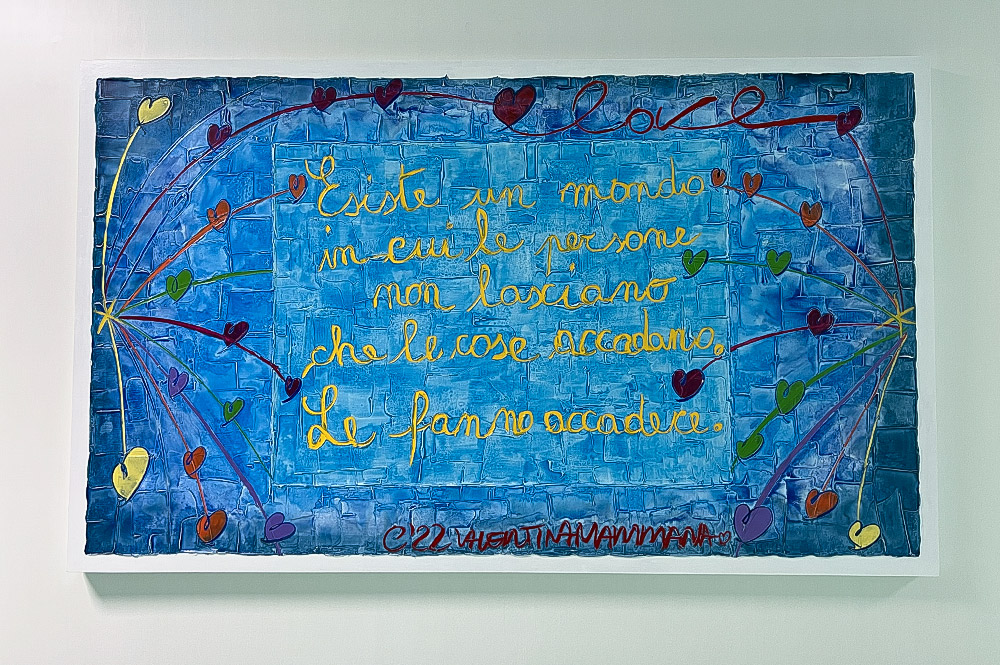 love
Esiste un mondo
in cui le persone
non lasciano
che le cose accadano.
Le fanno accadere.
C'22 VALENTINAMAMMANA